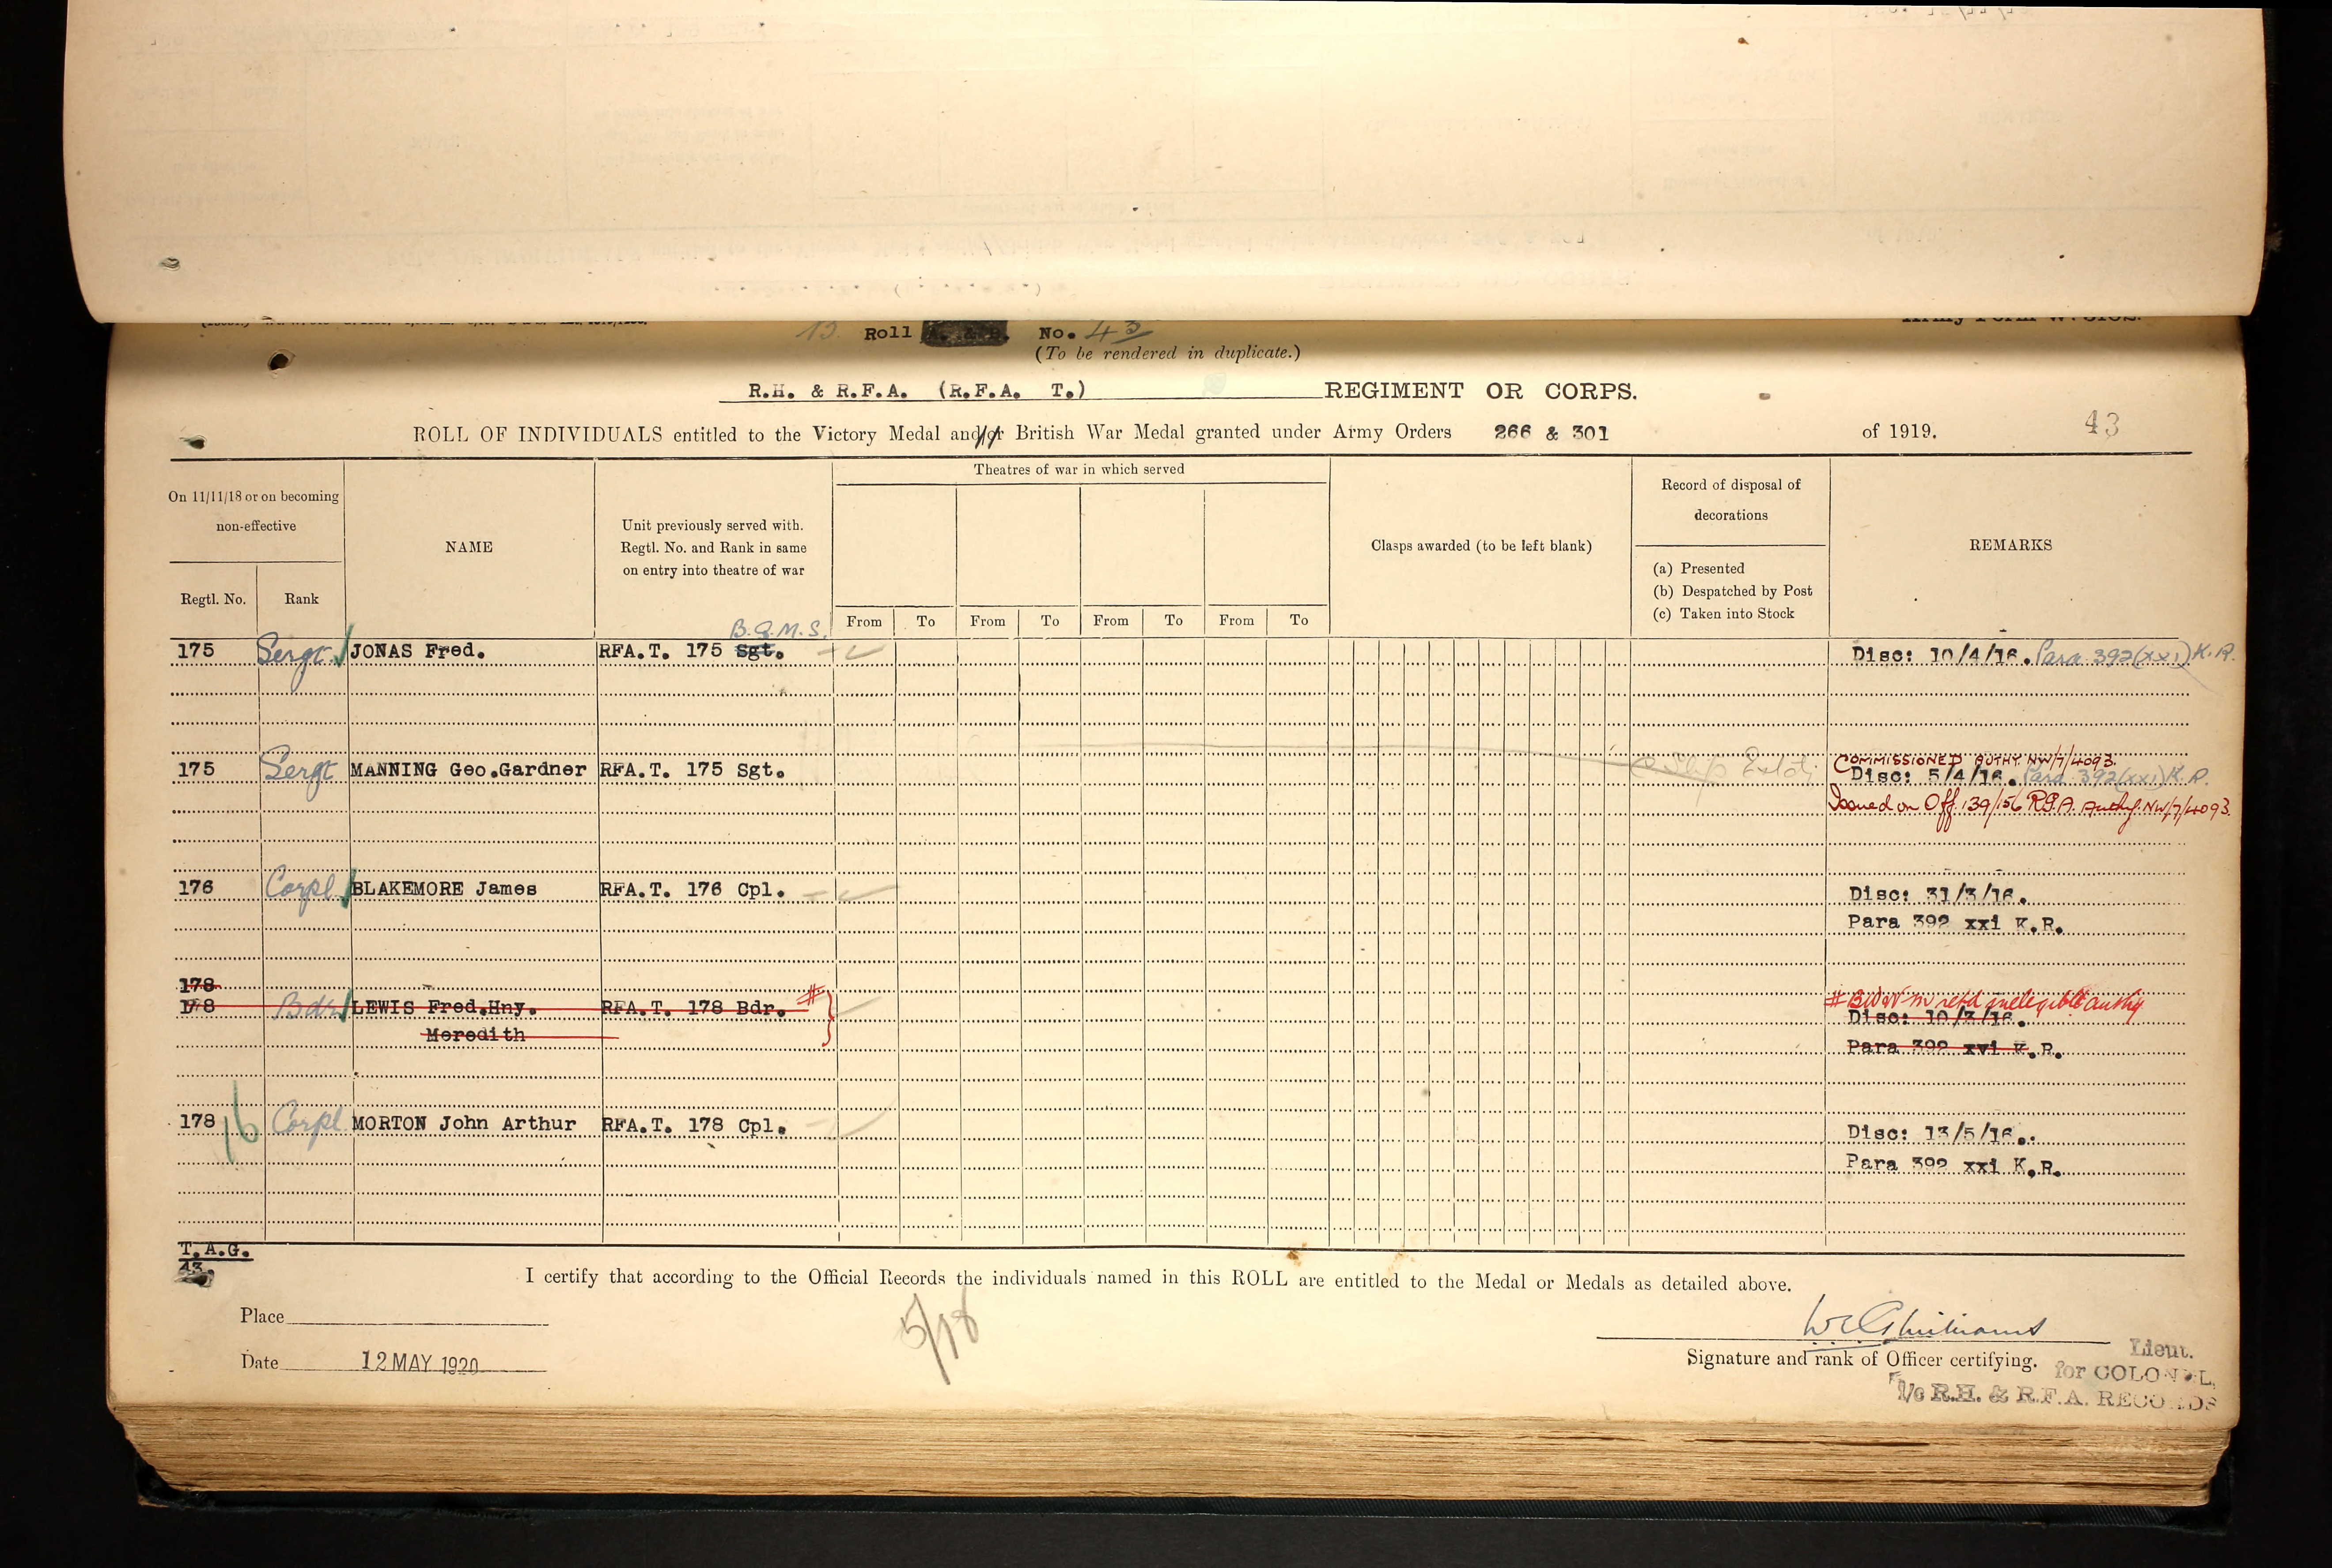 Roll No. 43
(To be rendered in duplicate.)
R.H. & R.F.A. (R.F.A. T.) REGIMENT OR CORPS.
ROLL OF INDIVIDUALS entitled to the Victory Medal and/or British War Medal granted under Army Orders 266 & 301 of 1919. 43
On 11/11/18 or on becoming
non-effective
Regtl. No.
Rank
NAME
Unit previously served with.
Regtl. No. and Rank in same
on entry into theatre of war
Theatres of war in which served
From To From To From To From To
Clasps awarded (to be left blank)
Record of disposal of
decorations
(a) Presented
(b) Despatched by Post
(c) Taken into Stock
REMARKS
B.Q.M.S.
175 Sergt. JONAS Fred. RFA.T. 175 Sgt. Disc: 10/4/16. Para 392(xxi) K.R.
COMMISSIONED AUTHY. NW/7/4093.
175 Sergt MANNING Geo.Gardner RFA.T. 175 Sgt. Disc: 5/4/16. Para 392(xxi) K.R.
Issued on Off. 139/156 RFA. Authy. NW/7/4093.
176 Corpl BLAKEMORE James RFA.T. 176 Cpl. Disc: 31/3/16.
Para 392 xxi K.R.
178
178 Bdr LEWIS Fred.Hny. RFA.T. 178 Bdr. # # BWV m retd inelegible authy
Disc: 10/3/16.
Meredith
Para 392 xvi K.R.
178 Corpl MORTON John Arthur RFA.T. 178 Cpl. Disc: 13/5/16.
Para 392 xxi K.R.
T.A.G.
43.
I certify that according to the Official Records the individuals named in this ROLL are entitled to the Medal or Medals as detailed above.
5/18
Place
Date 12 MAY 1920
Signature and rank of Officer certifying.
Lieut.
for COLONEL,
i/c R.H. & R.F.A. RECORDS